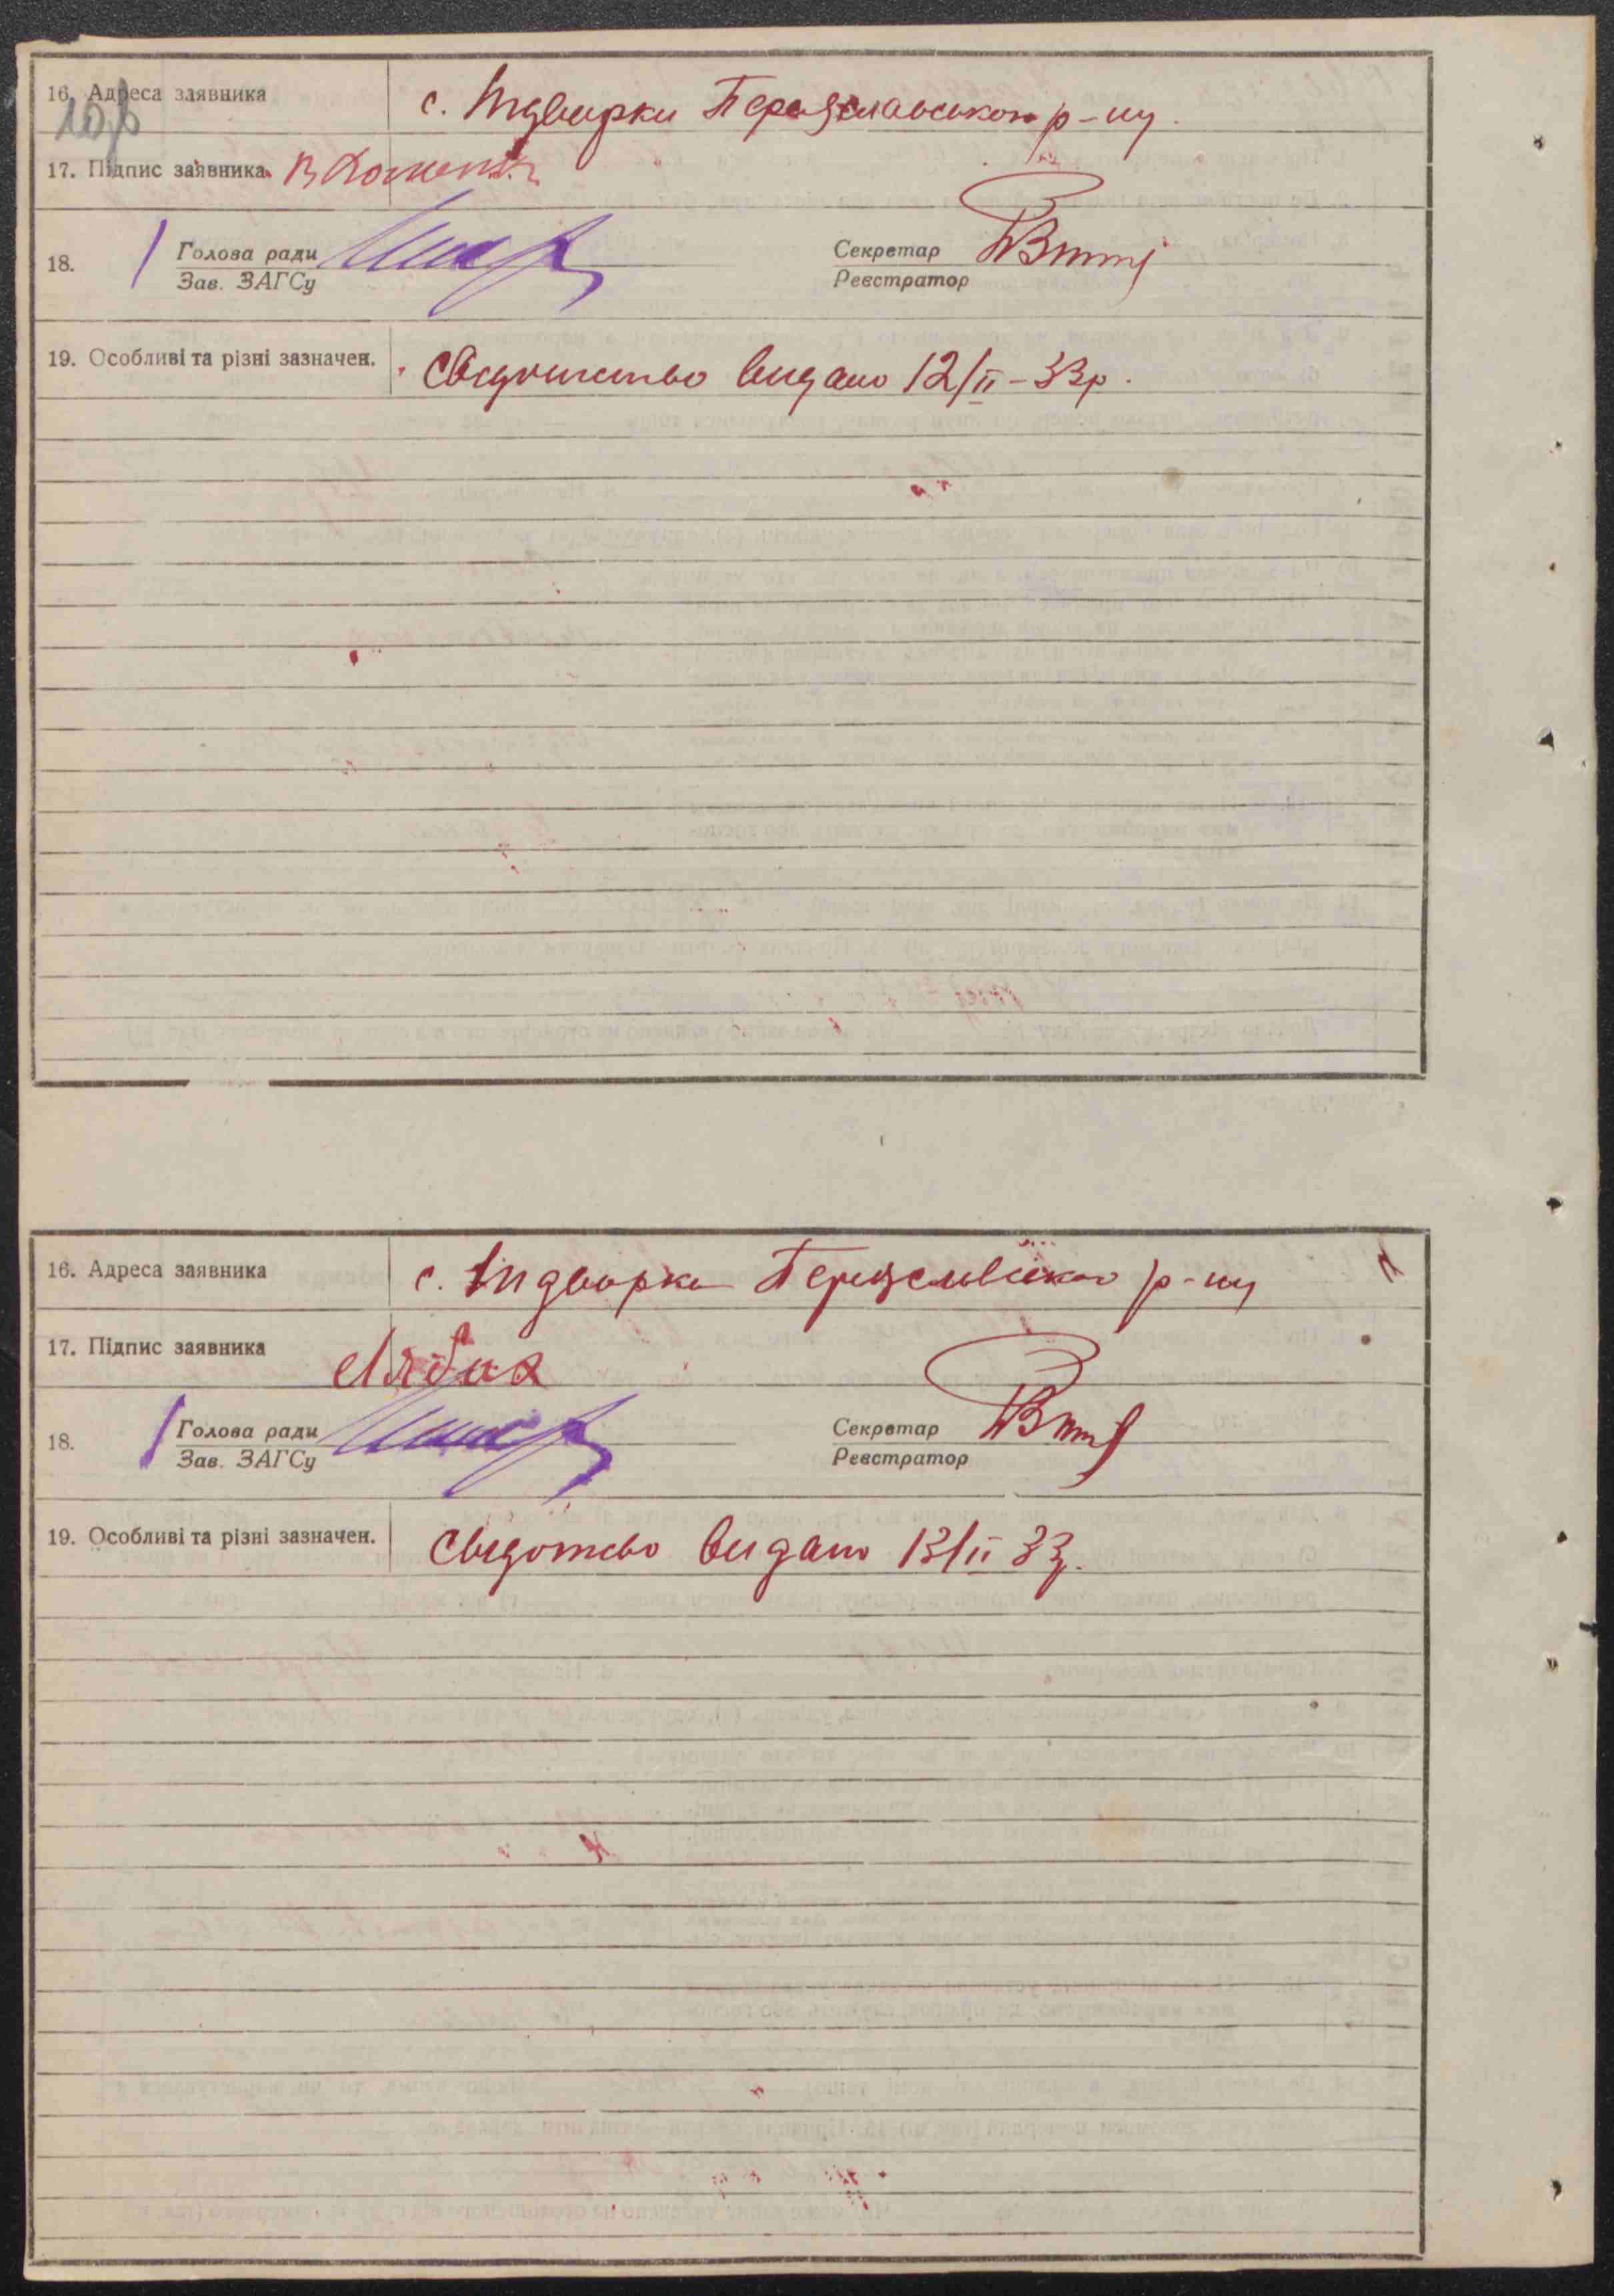 16. Адреса заявника с. Підварки Переяславського р-ну.
17. Підпис заявника
18. Голова ради Секретар
Зав. ЗАГСу Реєстратор
19. Особливі та різні зазначен. Свідоцтво видано 12/II-33р.
16. Адреса заявника с. Підварки Переяславського р-ну
17. Підпис заявника Лябах
18. Голова ради Секретар
Зав. ЗАГСу Реєстратор
19. Особливі та різні зазначен. Свідотсво видано 13/II 33р.